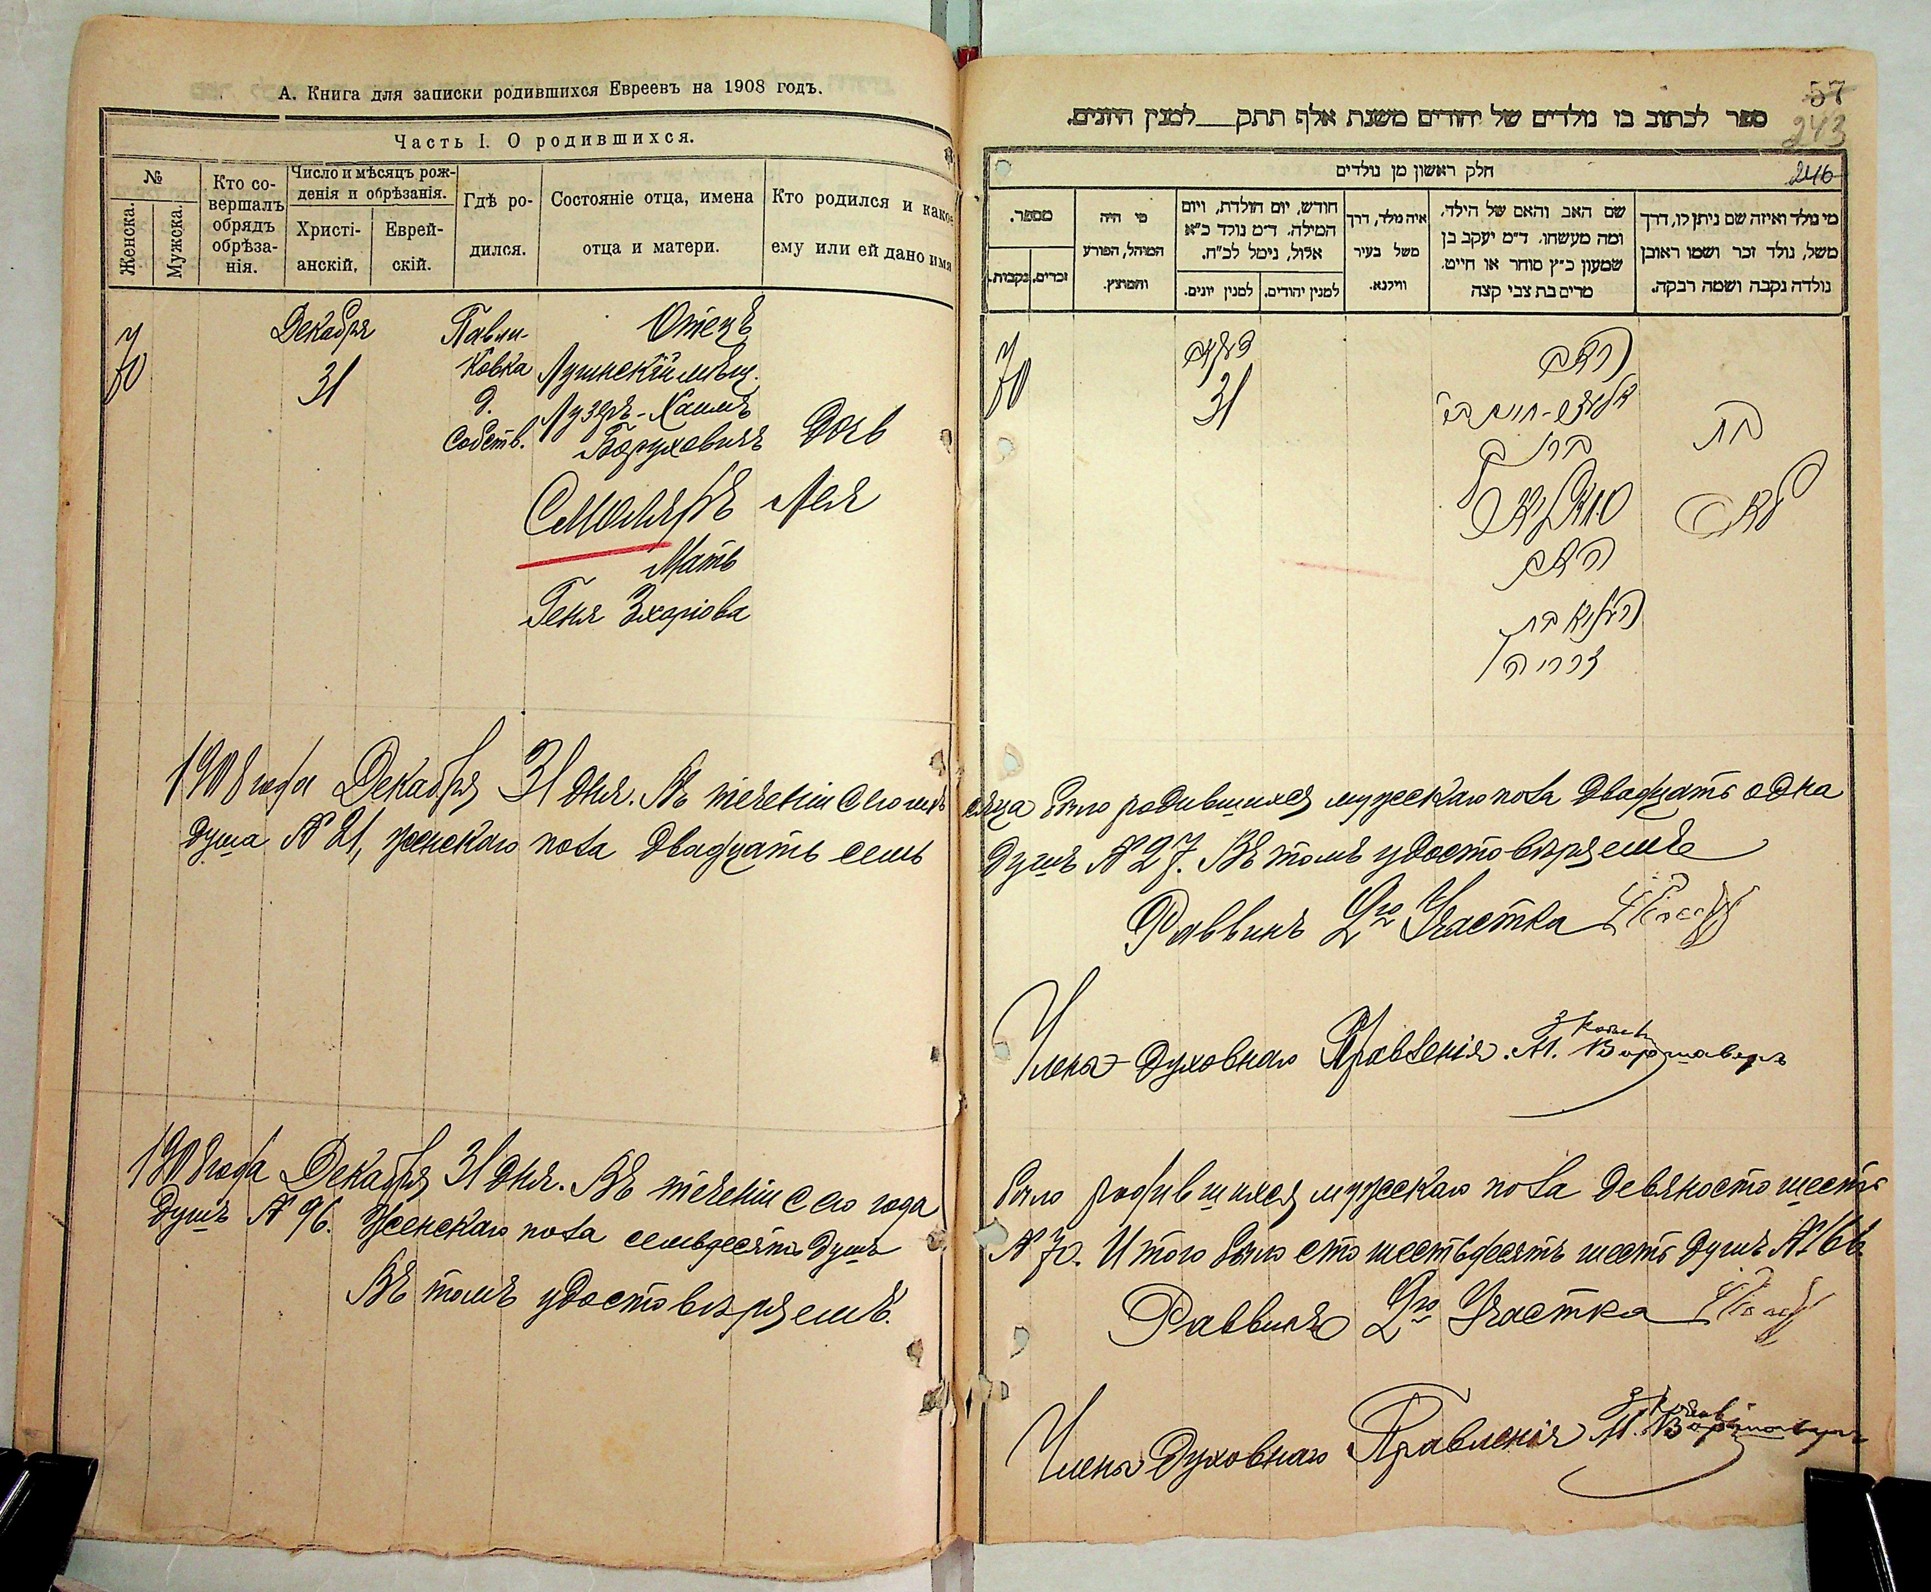 А. Книга для записки родившихся Евреевъ на 1908 годъ.
Часть I. О родившихся.
№
Женска.
Мужска.
Кто со-
вершалъ
обрядъ
обрѣза-
нія.
Число и мѣсяцъ рож-
денія и обрѣзанія.
Христі-
анскій,
Еврей-
скій.
Гдѣ ро-
дился.
Состояніе отца, имена
отца и матери.
Кто родился и какое
ему или ей дано имя
70
Декабря
31
Павли-
ковка
д.
Собств.
Отецъ
мѣщ.
Лузеръ-Хаимъ
Боруховичъ
Смоляръ
Мать
Геня
Дочь
Лея
1908 года Декабря 31 дня. Въ теченіи сего мѣ-
душа № 21, женскаго пола двадцать семь
1908 года Декабря 31 дня. Въ теченіи сего года
душъ № 96. Женскаго пола семьдесятъ душъ
Въ томъ удостовѣряемъ.
57
243
246
ספר לכתוב בו נולדים של יהודים משנת אלף תתק__למנין היונים.
חלק ראשון מן נולדים
מספר.
נקבות.
זכרים.
מי היה
המוהל, הפורע
והמוצץ.
חודש, יום הולדת, ויום
המילה. ד״מ נולד כ״א
אלול, נימל לכ״ח.
למנין יונים.
למנין יהודים.
איה נולד, דרך
משל בעיר
ווילנא.
שם האב והאם של הילד,
ומה מעשהו. ד״מ יעקב בן
שמעון כ״ץ סוחר או חייט.
מרים בת צבי קצה
מי נולד ואיזה שם ניתן לו, דרך
משל, נולד זכר ושמו ראובן
נולדה נקבה ושמה רבקה.
70
31
האב
ברוך
סמאליאר
האם
העניא בת
זכריה
בת
לאה
сяца было родившихся мужскаго пола двадцать одна
душъ № 27. Въ томъ удостовѣряемъ
Раввинъ 2го Участка
Члены Духовнаго Правленія. М. Воршаверъ
было родившихся мужскаго пола девяносто шесть
№ 70. Итого было сто шестьдесятъ шесть душъ № 166
Раввинъ 2го Участка
Члены Духовнаго Правленія М. Воршаверъ